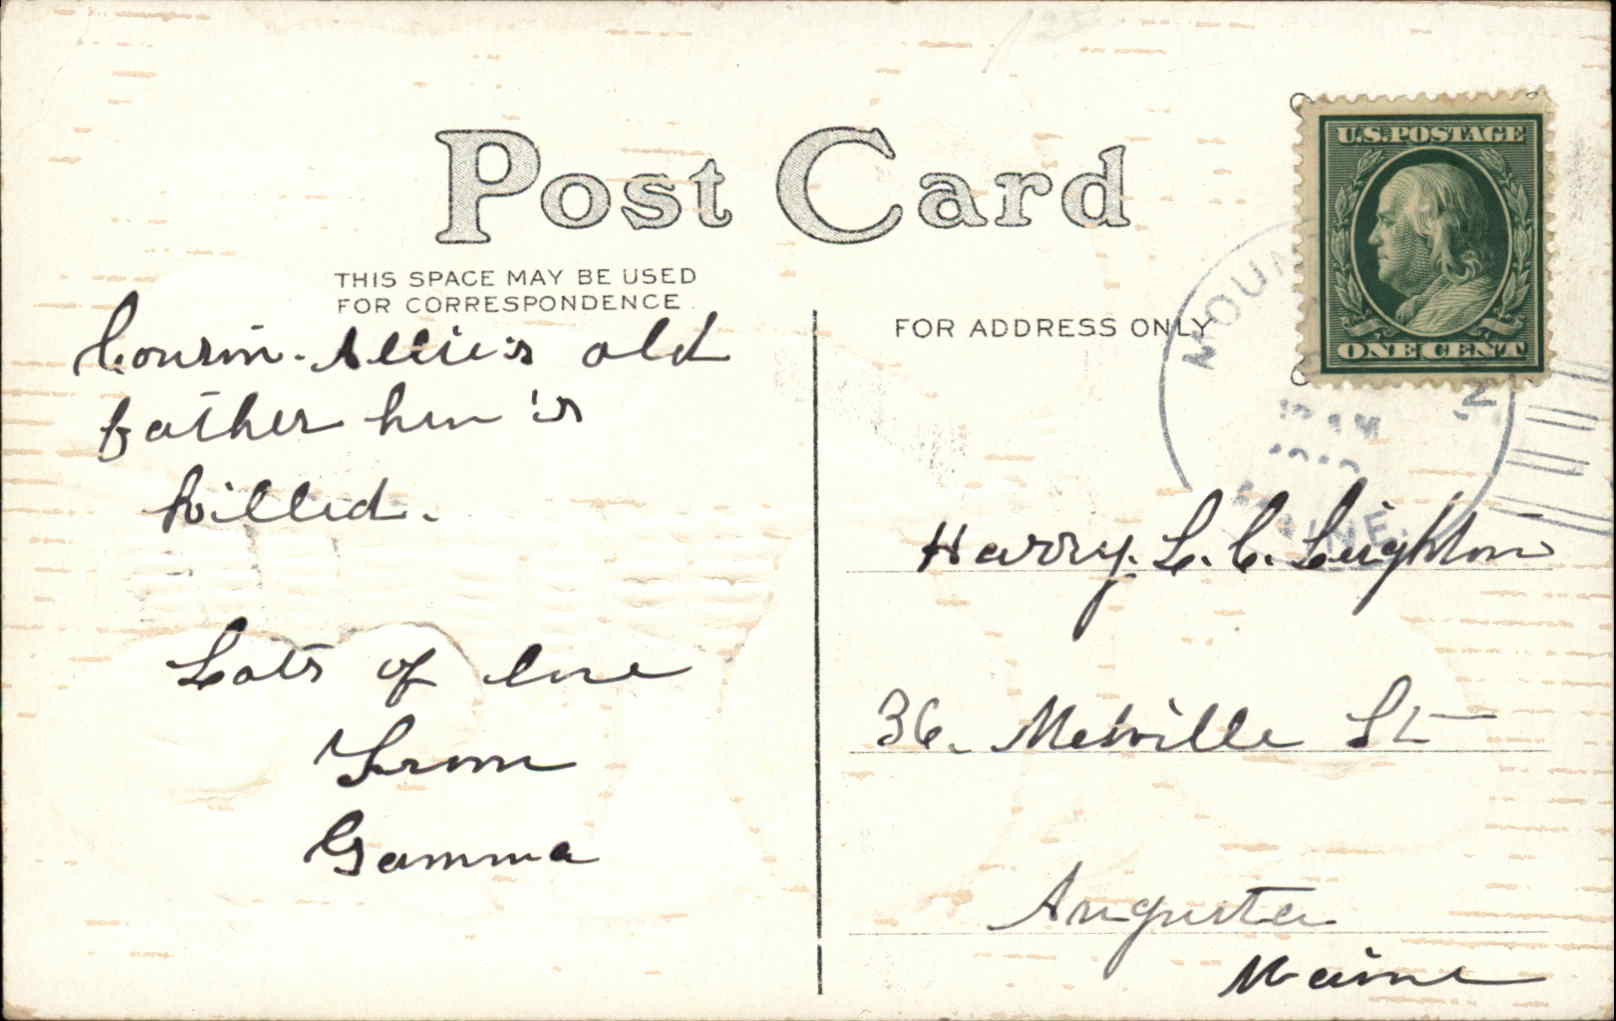 Post Card
THIS SPACE MAY BE USED
FOR CORRESPONDENCE
FOR ADDRESS ONLY
U.S. POSTAGE
ONE CENT
Cousin. Allie's old
father hen 's
killed.
Lots of love
From
Gamma
Harry. L. C. Leighton
36. Melville St
Augusta
Maine
MOUN